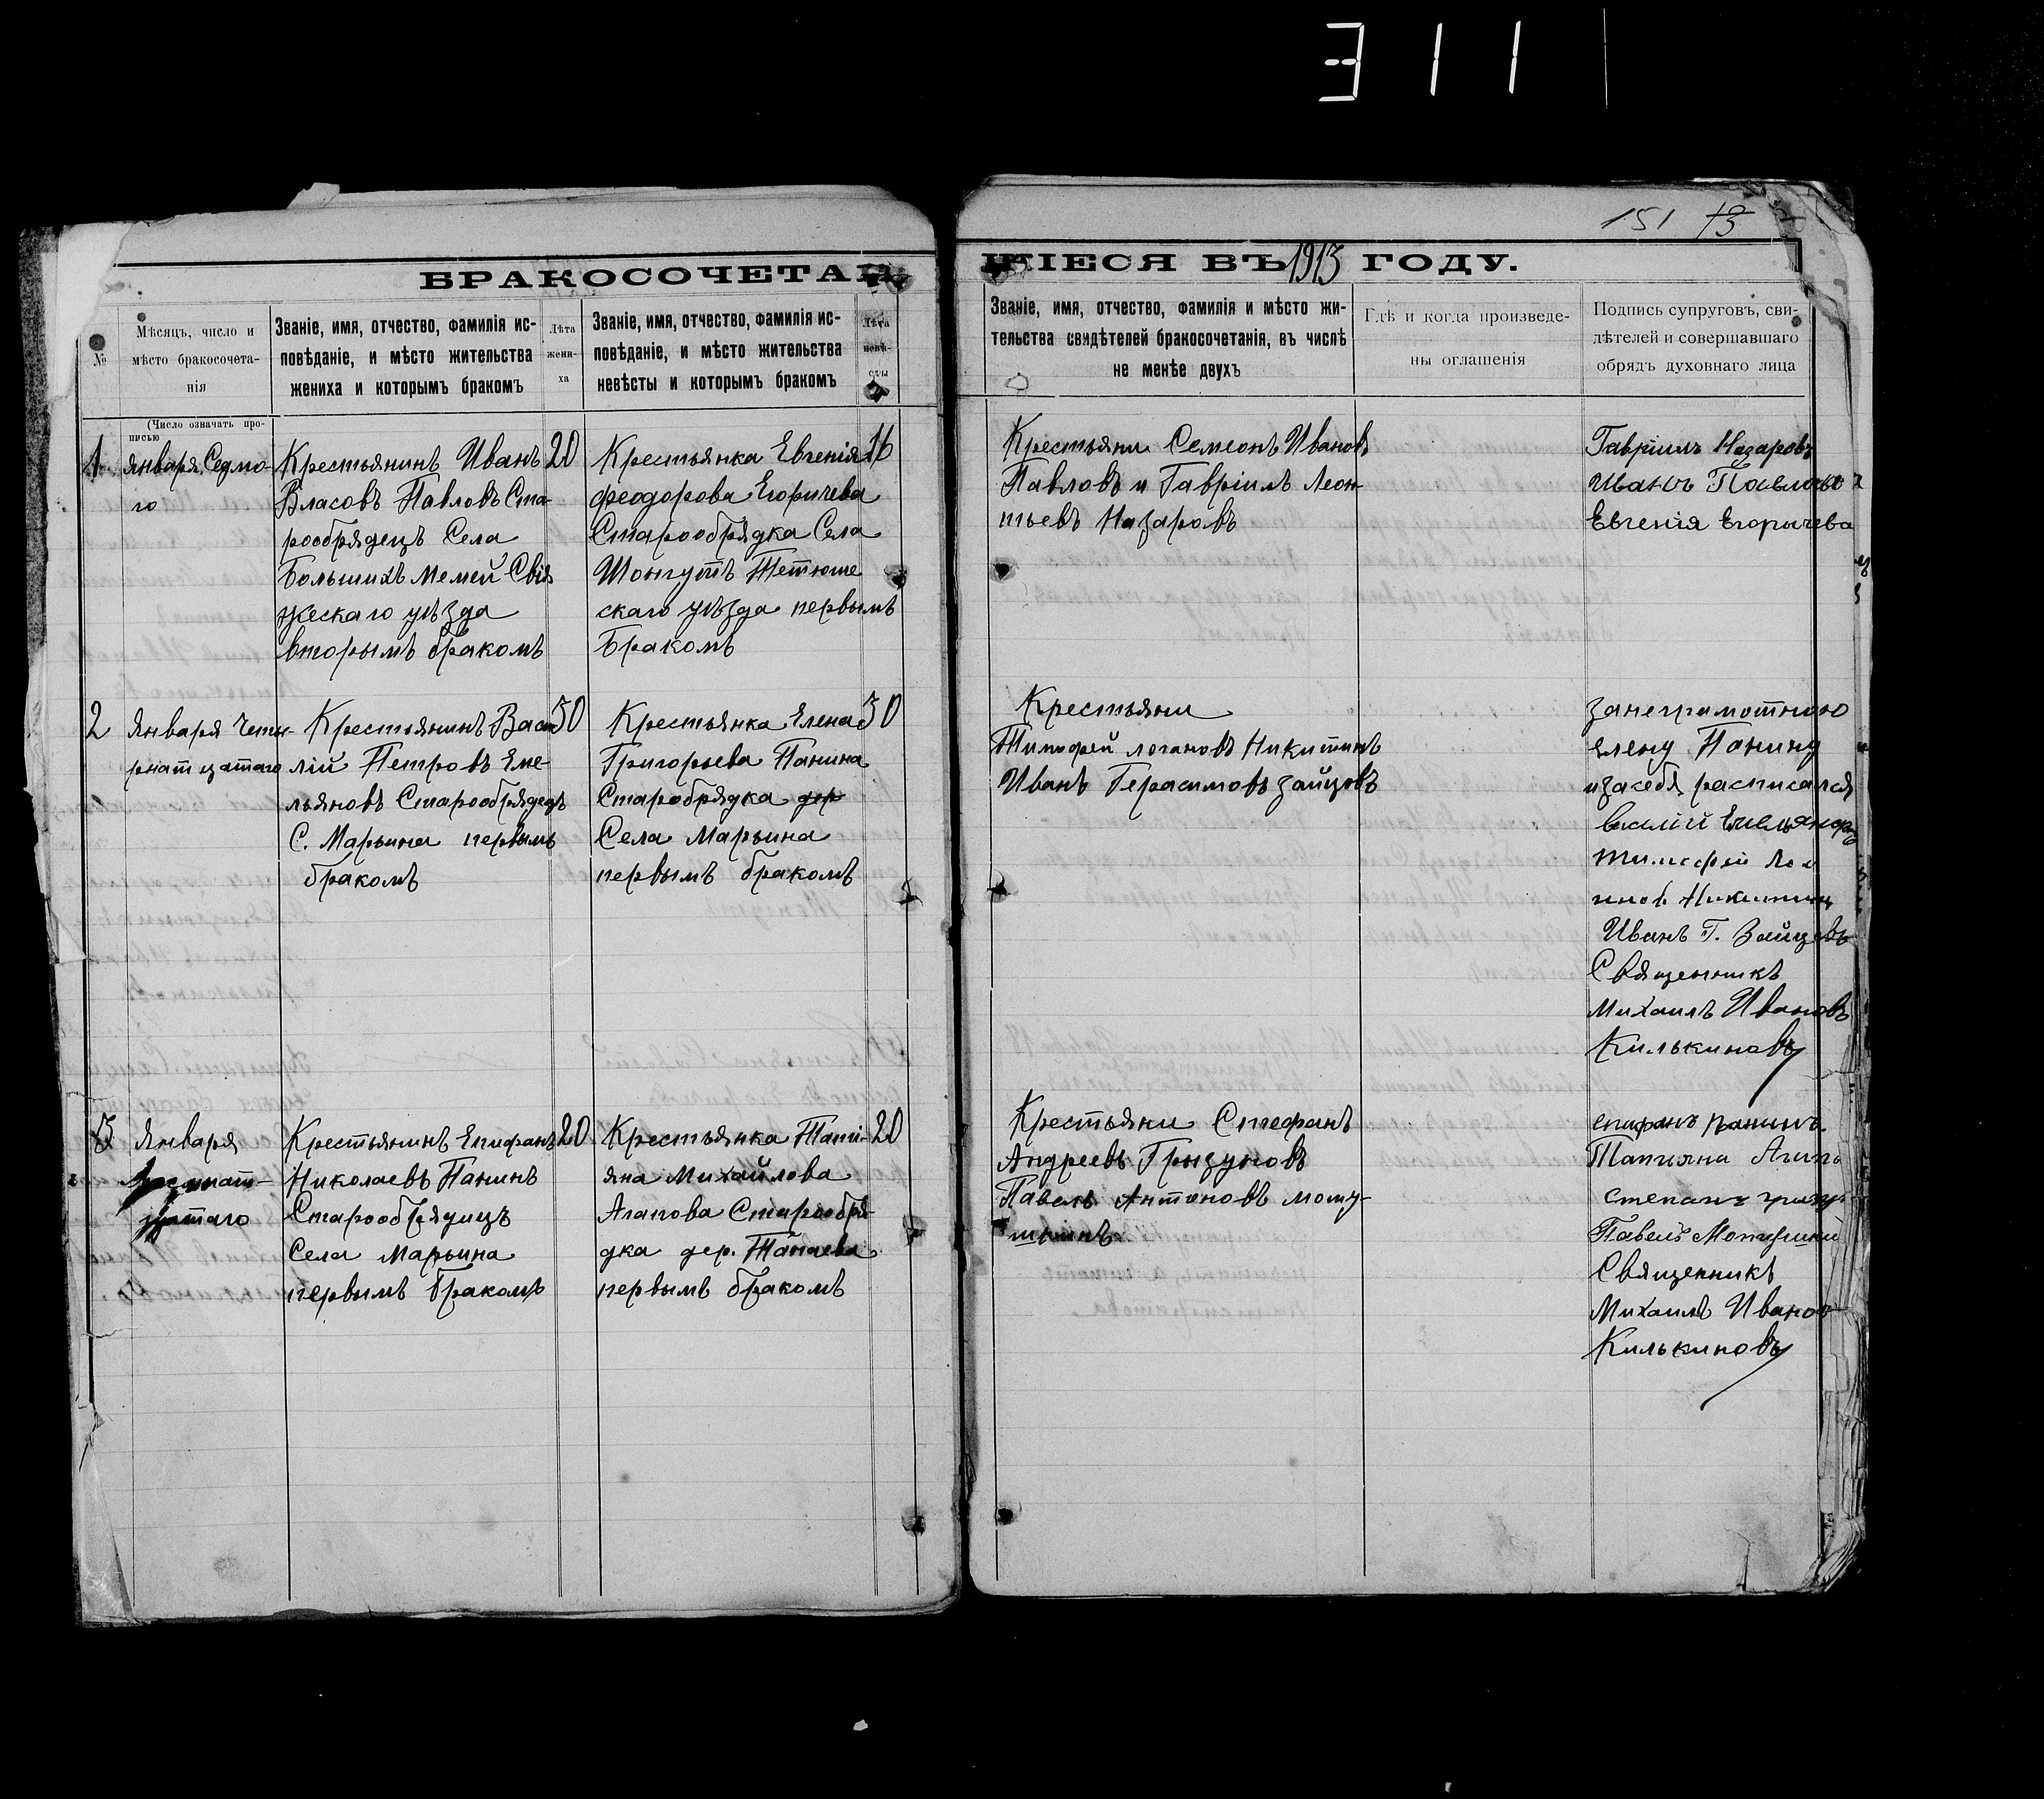 311
151 13
БРАКОСОЧЕТАВШІЕСЯ ВЪ 1913 ГОДУ.
№
Мѣсяцъ, число и
мѣсто бракосочета-
нія
Званіе, имя, отчество, фамилія ис-
повѣданіе, и мѣсто жительства
жениха и которымъ бракомъ
Лѣта
жени-
ха
Званіе, имя, отчество, фамилія ис-
повѣданіе, и мѣсто жительства
невѣсты и которымъ бракомъ
Лѣта
невѣ-
сты
Званіе, имя, отчество, фамилія и мѣсто жи-
тельства свидѣтелей бракосочетанія, въ числѣ
не менѣе двухъ
Гдѣ и когда произведе-
ны оглашенія
Подпись супруговъ, сви-
дѣтелей и совершавшаго
обрядъ духовнаго лица
(Число означать про-
писью
1
января Седмо-
го
Крестьянинъ Иванъ
Власовъ Павловъ Ста-
рообрядецъ Села
Большихъ Мемей Свія
жескаго уѣзда
вторымъ бракомъ
20
Крестьянка Евгенія
феодорова Егоричева
Старообрядка Села
Шонгутъ Тетюше
скаго уѣзда первымъ
Бракомъ
16
Крестьяни Семеонъ Ивановъ
Павловъ и Гавріилъ Леон
тьевъ Назаровъ
Гавріилъ Назаровъ
Иванъ Павловъ
Евгенія Егорычева
2
Января Четы-
рнатцатаго
Крестьянинъ Васи
лій Петровъ Еме-
льяновъ Старообрядецъ
С. Марьина первымъ
бракомъ
30
Крестьянка Елена
Григорьева Панина
Старобрядка дер
Села Марьина
первымъ бракомъ
30
Крестьяни
Тимофей логановъ Никитинъ
Иванъ Герасимовъ зайцовъ
занеграмотною
Елену Панину
изасебя расписался
василій Емельяновъ
Тимофей
Никитинъ
Иванъ Г. Зайцевъ
Священникъ
Михаилъ Ивановъ
Килькиновъ
3
Января
цатаго
Крестьянинъ Епифанъ
Николаевъ Панинъ
Старообрядицъ
Села Марьина
первымъ бракомъ
20
Крестьянка Тати-
яна Михайлова
Агапова Старообря-
дка дер. Танаева
первымъ бракомъ
20
Крестьяни Стефанъ
Андреевъ Грызуновъ
Павелъ Антоновъ моту-
шкинъ
епифанъ панинъ
Татияна
степанъ
Павелъ Мотушкин
Священникъ
Михаилъ Иванов
Килькиновъ